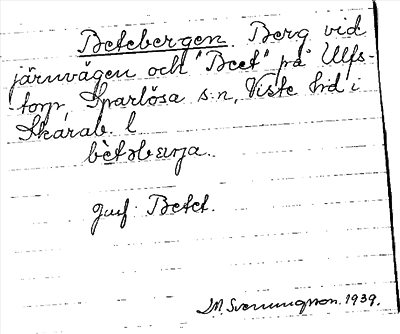 Betebergen. Berg vid
järnvägen och "Beet" på Ulfs-
torp, Sparlösa s:n, Viste hd i
Skarab. l
bètəbærja.
jmf. Betet.
M. Svenungsson. 1939.